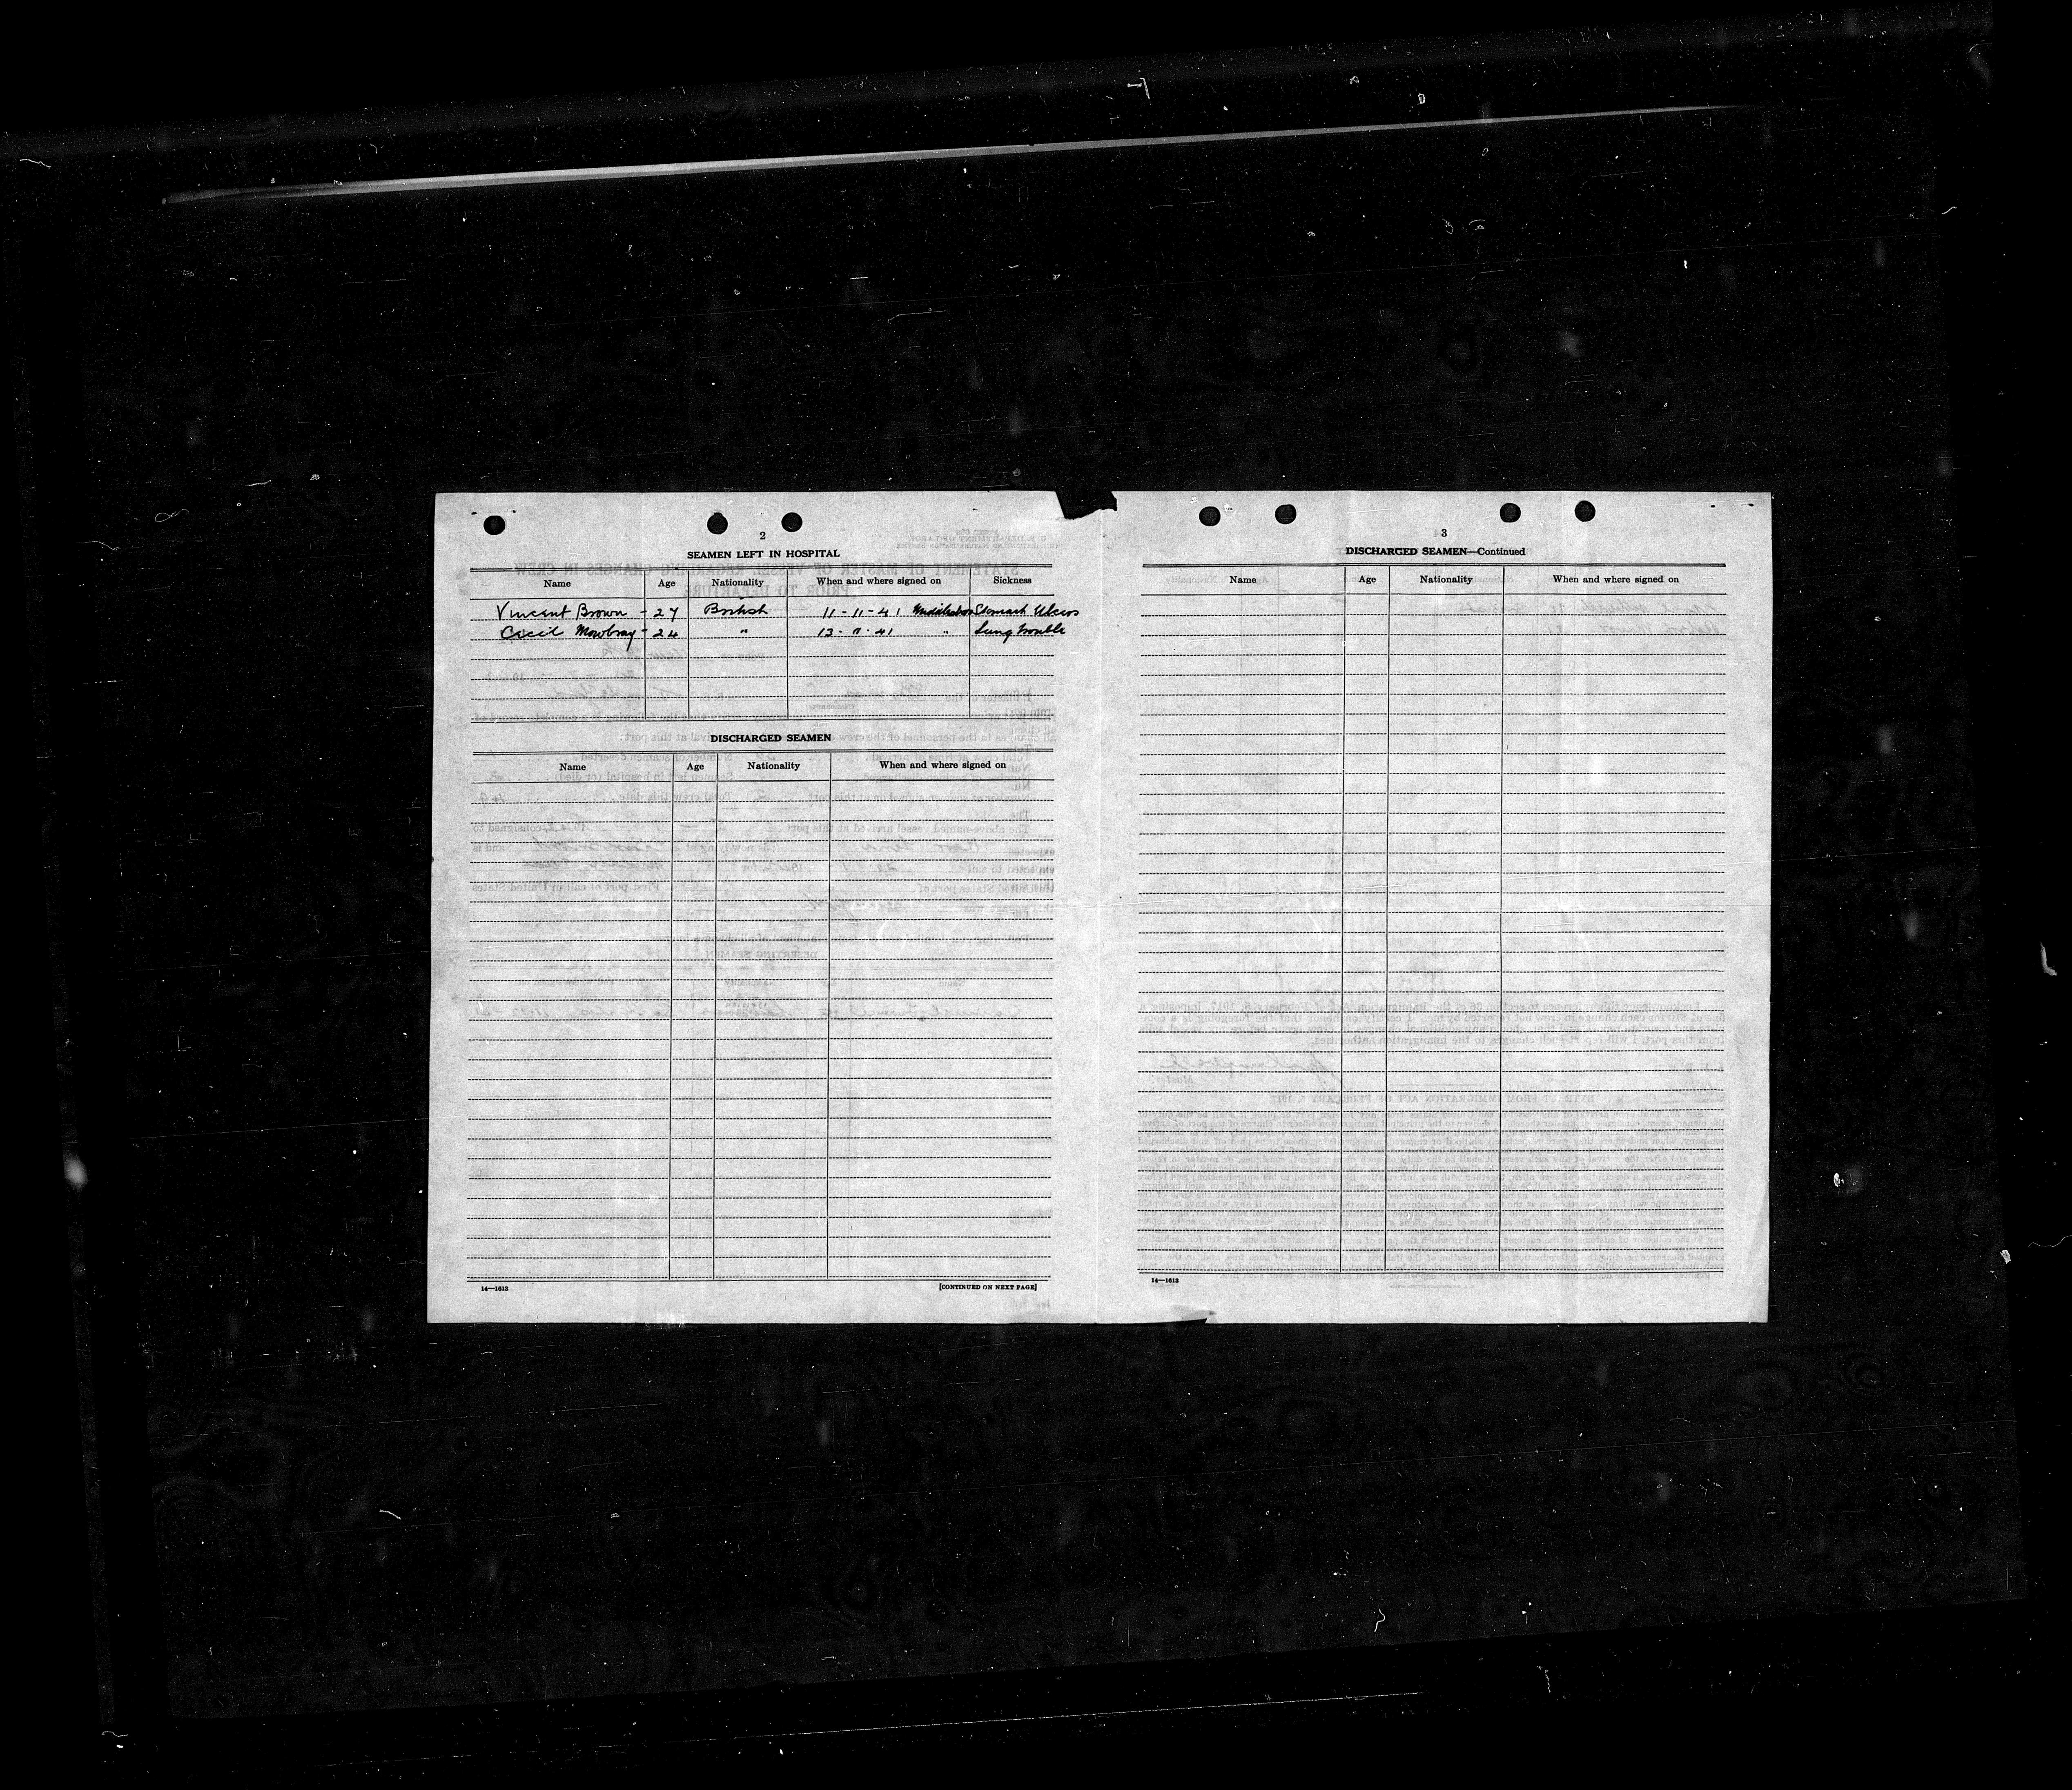 2
SEAMEN LEFT IN HOSPITAL
Name Age Nationality When and where signed on Sickness
Vincent Brown - 27 British 11-11-41 Stomach Ulcers
Cecil Mowbray - 24 " 13-11-41 " Lung trouble
DISCHARGED SEAMEN
Name Age Nationality When and where signed on
14—1613
[CONTINUED ON NEXT PAGE]
3
DISCHARGED SEAMEN—Continued
Name Age Nationality When and where signed on
14—1613